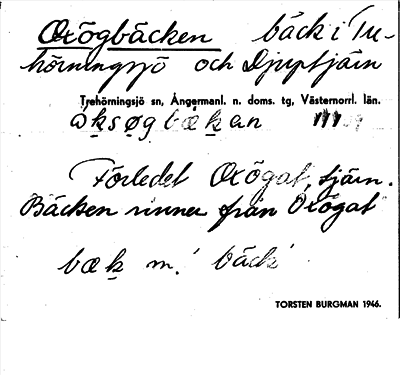 Oxögbäcken bäck i Tre-
hörningsjö och Djuptjärn
Trehörningsjö sn, Ångermanl. n. doms. tg, Västernorrl. län.
åksøgbækan
Förledet Oxögat, tjärn.
Bäcken rinner från Oxögat
bæk m. 'bäck'
TORSTEN BURGMAN 1946.